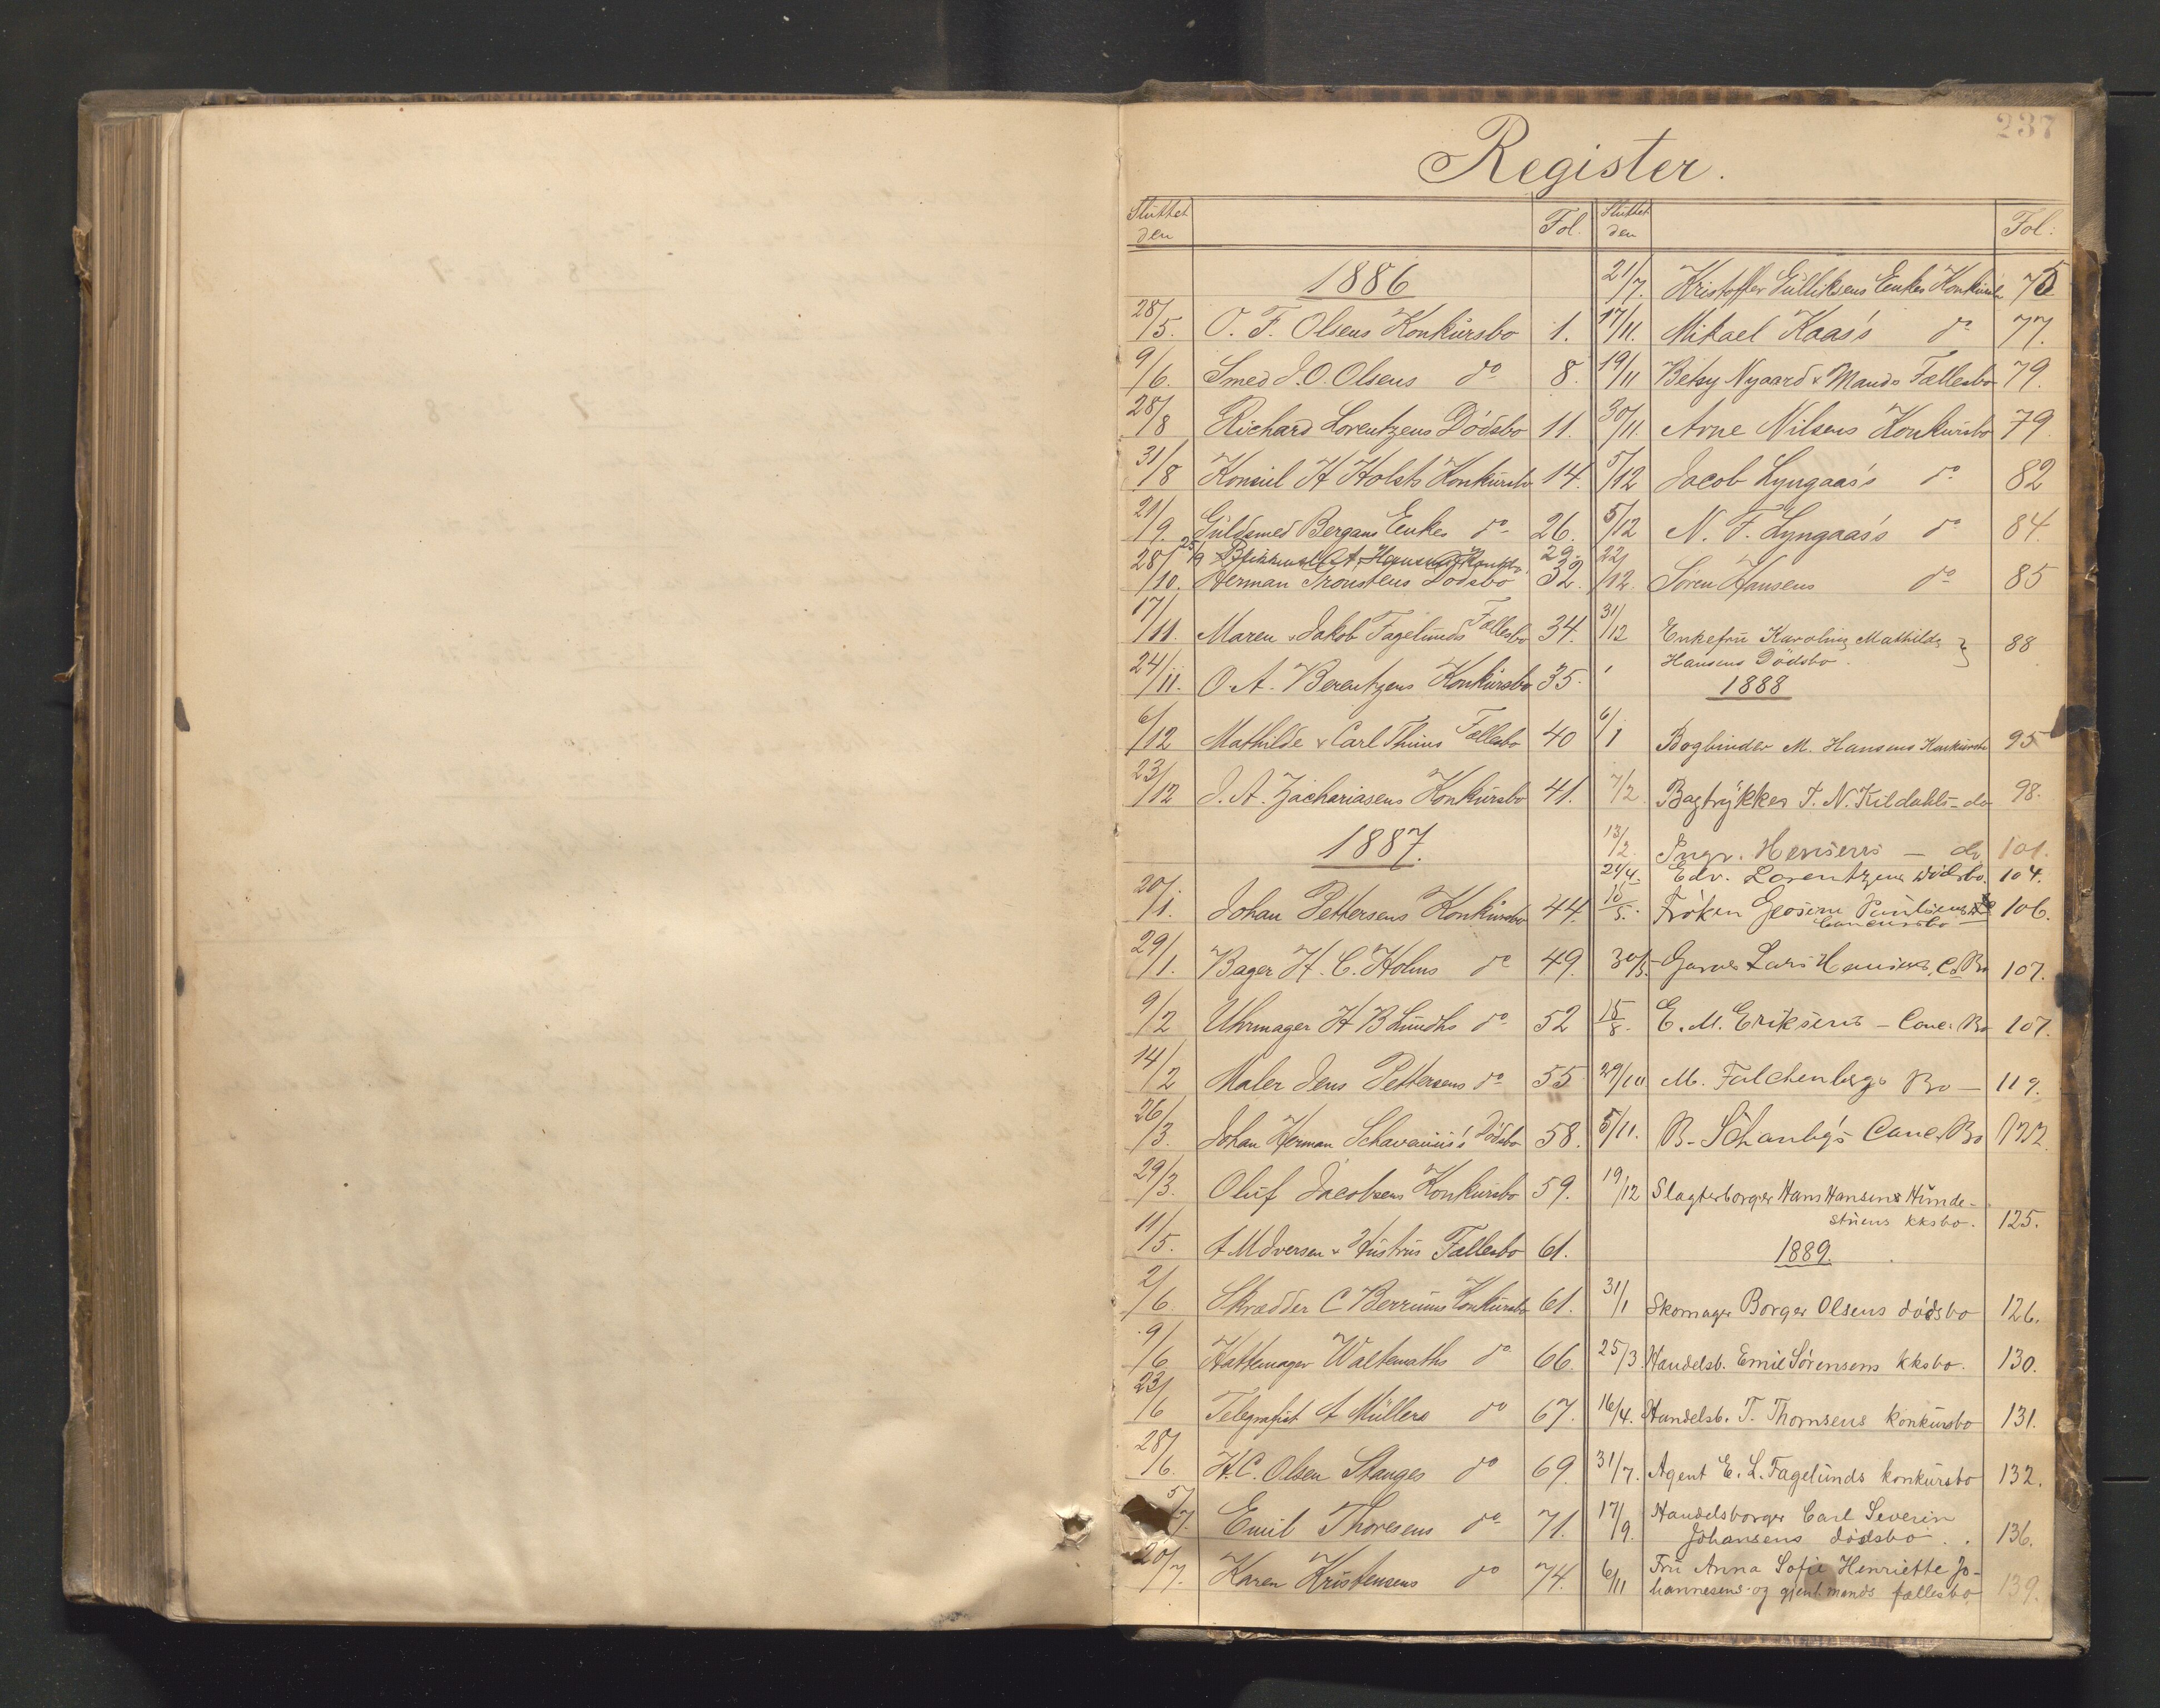 237
Register.
Sluttet den Fol.
1886
28/5. O. F. Olsens Konkursbo 1.
9/6. Smed J. O. Olsens do 8.
28/8 Richard Lorentzens Dödsbo 11.
31/8 Konsul H Holsts Konkursbo 14.
21/9. Guldsmed Bergans Enkes do 26.
25/9 A. Hansens Konkbo. 29.
28/10. Herman Tronstens Dödsbo 32.
17/11. Maren & Jakob Fagelunds Fællesbo 34.
24/11. O. A. Berentzens Konkursbo 35.
6/12 Mathilde & Carl Thiins Fællesbo 40
23/12 J. A. Zachariasens Konkursbo 41.
1887.
20/1. Johan Pettersens Konkursbo 44.
29/1. Bager H. C. Holms do 49.
9/2 Uhrmager H B Lundhs do 52
14/2 Maler Jens Pettersens do 55
26/3. Johan Herman Dödsbo 58.
29/3. Oluf Jacobsens Konkursbo 59.
11/5. A M Iversen & Hustrus Fællesbo 61.
2/6. Skrædder C Berrums Konkursbo 61.
9/6 Hattemager Waltemaths do 66
23/6 Telegrafist A Müllers do 67.
28/6. H. C. Olsen Stanges do 69.
5/7. Emil Thoresens do 71.
20/7. Karen Kristensens do 74.
Sluttet den Fol.
21/7. Kristoffer Gulliksens Enkes Konkursbo 75
17/11. Mikael Kaas's do 77.
19/11 Betsy Nygaard & Mands Fællesbo 79.
30/11. Arne Nilsens Konkursbo 79.
5/12 Jacob Lyngaas's do 82
5/12 N. F. Lyngaas's do 84.
22/12. Sören Hansens do 85
31/12 Enkefru Karoline Mathilde
Hansens Dödsbo. 88
1888
6/1 Bogbinder M. Hansens Konkursbo 95
7/2. Bogtrykker T. N. Kildahls - do 98.
13/2. Ingv. Hensens - do 101.
24/4. Edv. Lorentzens dödsbo. 104.
10/5. Fröken Paulsens
Concursbo 106.
30/5. Garver Lars Hansens C. Bo 107.
15/8. E. M. Eriksens - Conc. Bo 107.
29/10 M. Falchenbergs Bo - 119.
5/11. B. Schanbg's Conc. Bo 122.
19/12 Slagterborger Hans Hansens Hunde-
stuens kksbo. 125.
1889.
31/1 Skomager Borger Olsens dödsbo 126.
25/3. Handelsb. Emil Sörensens kksbo. 130.
16/4. Handelsb. T. Thomsens konkursbo 131.
31/7. Agent E. L. Fagelunds konkursbo 132.
17/9. Handelsborger Carl Severin
Johansens dödsbo . . 136.
6/11 Fru Anna Sofie Henriette Jo-
hannesens og gjenl. mands fællesbo 139.